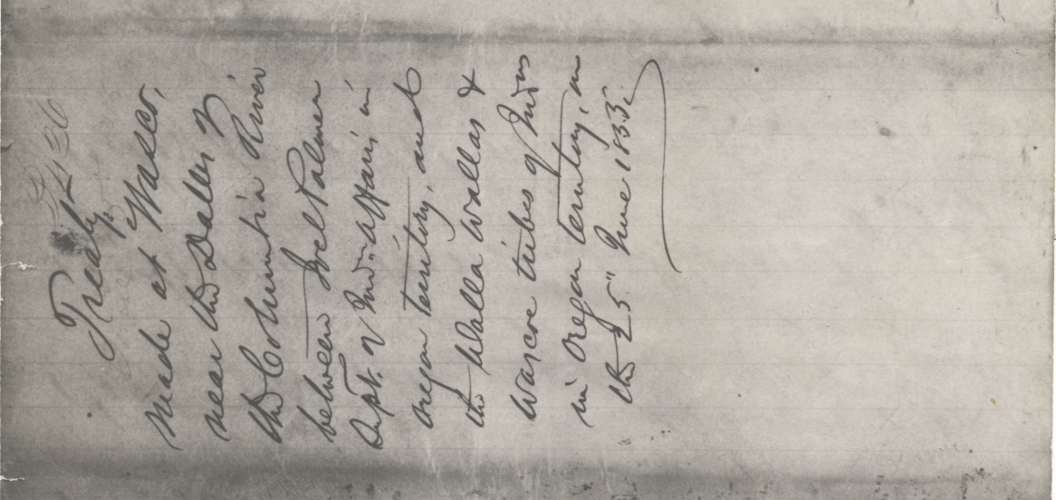 Treaty
made at Wasco,
near the Dalles of
the Columbia River
between Joel Palmer
Supt. of Ind. Affairs in
Oregon territory, and
the Walla Wallas &
Wascoe tribes of Inds
in Oregon territory, on
the 25" June 1855.